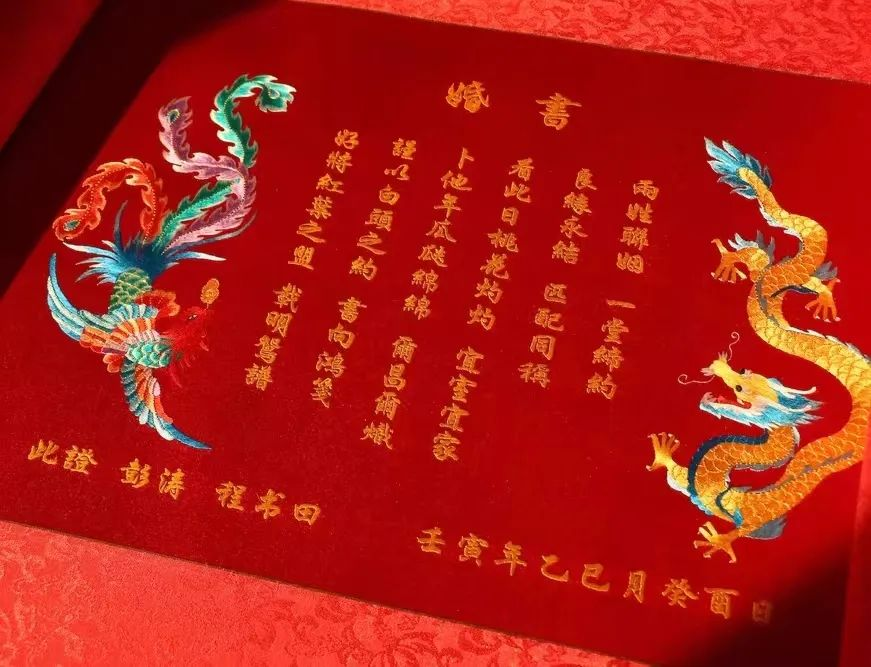 婚書
兩姓聯姻 一堂締約
良緣永結 匹配同稱
看此日桃花灼灼 宜室宜家
卜他年瓜瓞綿綿 爾昌爾熾
謹以白頭之約 書向鴻箋
好將紅葉之盟 載明鴛譜
此證 彭涛 程书田
壬寅年乙巳月癸酉日